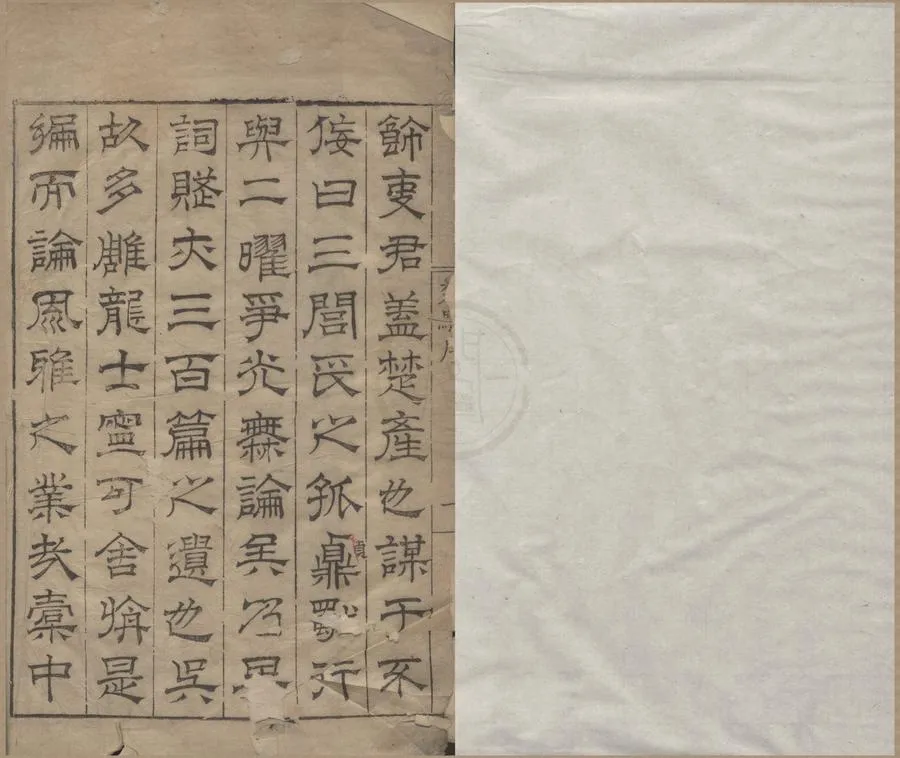 餙叓君盖楚產也謀于不
佞曰三閭氏之孤鼎行
貞
與二曜爭光無論矣乃
詞賦亦三百篇之遺也吳
故多雕龍士寧可舍旃是
編而論風雅之業者橐中